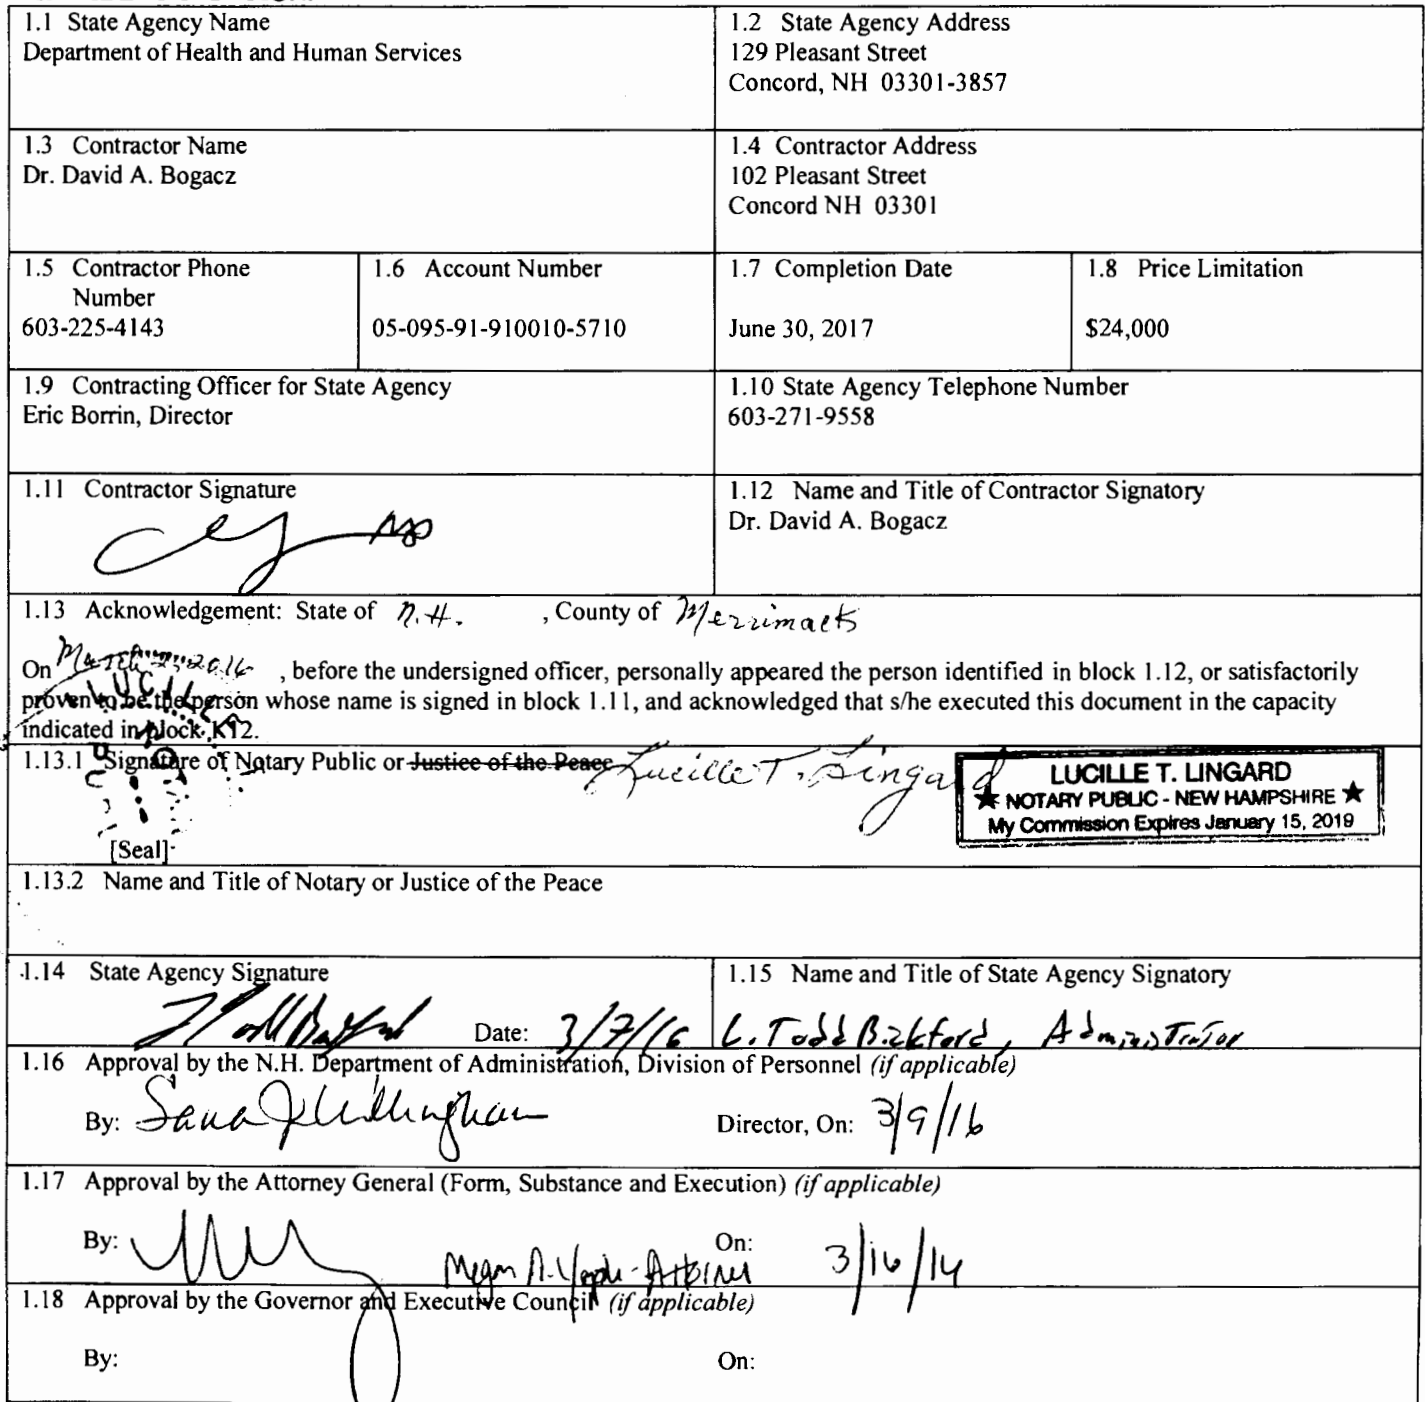 1.1 State Agency Name
Department of Health and Human Services
1.2 State Agency Address
129 Pleasant Street
Concord, NH 03301-3857
1.3 Contractor Name
Dr. David A. Bogacz
1.4 Contractor Address
102 Pleasant Street
Concord NH 03301
1.5 Contractor Phone
Number
603-225-4143
1.6 Account Number
05-095-91-910010-5710
1.7 Completion Date
June 30, 2017
1.8 Price Limitation
$24,000
1.9 Contracting Officer for State Agency
Eric Borrin, Director
1.10 State Agency Telephone Number
603-271-9558
1.11 Contractor Signature
1.12 Name and Title of Contractor Signatory
Dr. David A. Bogacz
1.13 Acknowledgement: State of N.H. , County of Merrimack
On March 2, 2016 , before the undersigned officer, personally appeared the person identified in block 1.12, or satisfactorily
proven to be the person whose name is signed in block 1.11, and acknowledged that s/he executed this document in the capacity
indicated in block 1.12.
1.13.1 Signature of Notary Public or Justice of the Peace Lucille T. Lingard
LUCILLE T. LINGARD
★ NOTARY PUBLIC - NEW HAMPSHIRE ★
My Commission Expires January 15, 2019
[Seal]
1.13.2 Name and Title of Notary or Justice of the Peace
1.14 State Agency Signature
Date: 3/7/16
1.15 Name and Title of State Agency Signatory
L. Todd Bickford, Administrator
1.16 Approval by the N.H. Department of Administration, Division of Personnel (if applicable)
By: Director, On: 3/9/16
1.17 Approval by the Attorney General (Form, Substance and Execution) (if applicable)
By: Megan A. On:
1.18 Approval by the Governor and Executive Council (if applicable)
By: On: